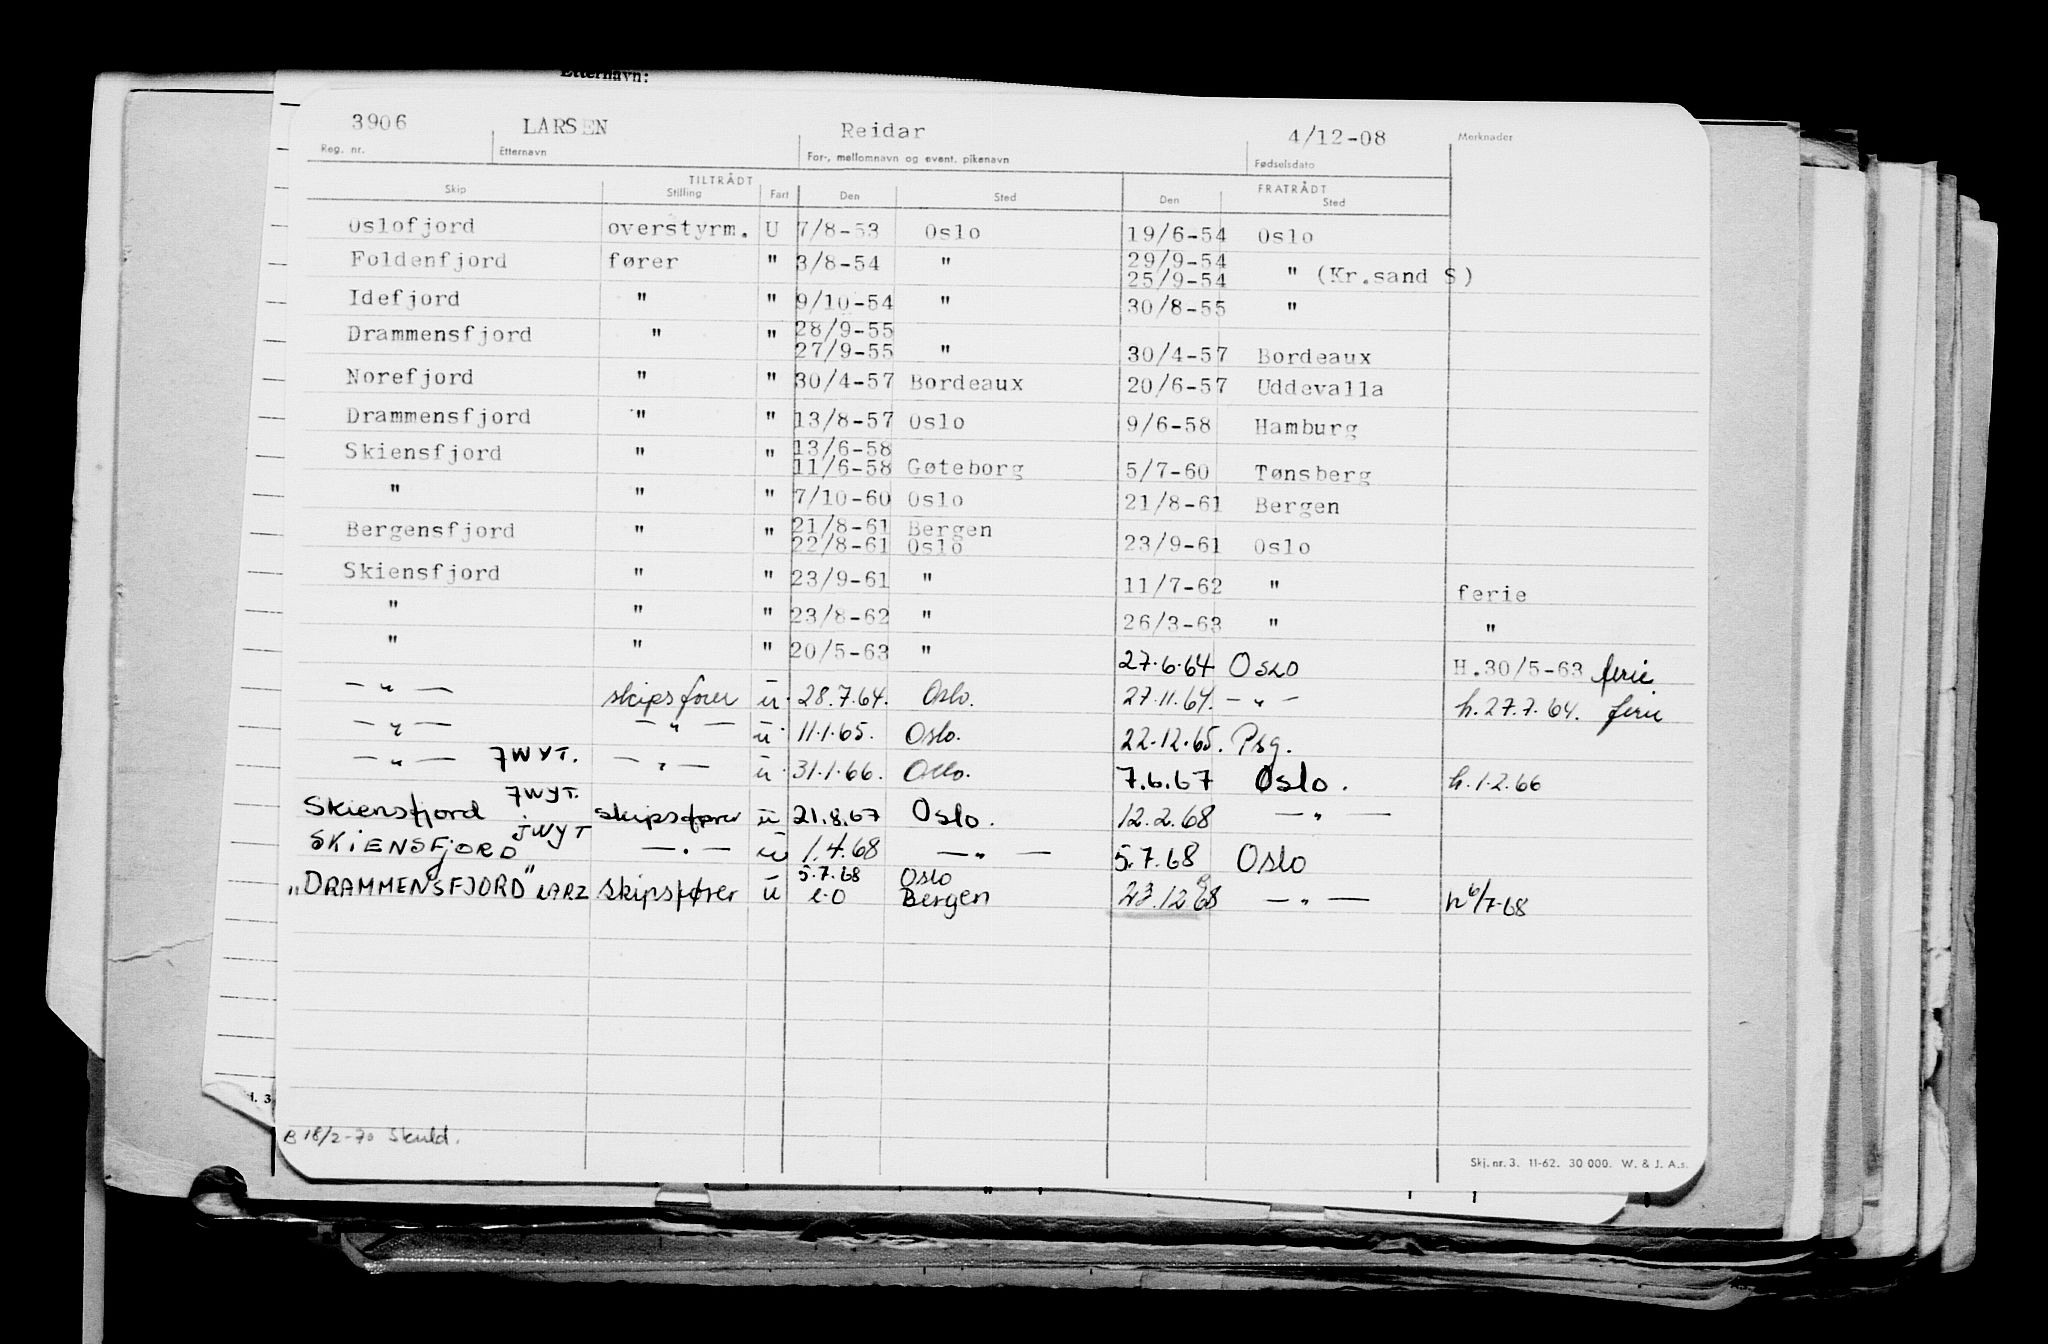 Etternavn:
3906 LARSEN Reidar 4/12-08 Merknader
Reg. nr. Etternavn For-, mellomnavn og event. pikenavn Fødselsdato
TILTRÅDT FRATRÅDT
Skip Stilling Fart Den Sted Den Sted
Oslofjord overstyrm. U 7/8-53 Oslo 19/6-54 Oslo
Foldenfjord fører " 3/8-54 " 29/9-54
25/9-54 " (Kr.sand S)
Idefjord " " 9/10-54 " 30/8-55 "
Drammensfjord " " 28/9-55
27/9-55 " 30/4-57 Bordeaux
Norefjord " " 30/4-57 Bordeaux 20/6-57 Uddevalla
Drammensfjord " " 13/8-57 Oslo 9/6-58 Hamburg
Skiensfjord " " 13/6-58
11/6-58 Gøteborg 5/7-60 Tønsberg
" " " 7/10-60 Oslo 21/8-61 Bergen
Bergensfjord " " 21/8-61 Bergen
22/8-61 Oslo 23/9-61 Oslo
Skiensfjord " " 23/9-61 " 11/7-62 " ferie
" " " 23/8-62 " 26/3-63 " "
" " " 20/5-63 " 27.6.64 Oslo H.30/5-63 ferie
— " — skipsfører u. 28.7.64. Oslo. 27.11.64. — " — h.27.7.64. ferie
— " — — " — u. 11.1.65. Oslo. 22.12.65. Psg.
— " — JWYT. — " — u. 31.1.66. Oslo. 7.6.67 Oslo. h.1.2.66
JWYT.
Skiensfjord skipsfører u 21.8.67 Oslo. 12.2.68 — " —
JWYT
SKIENSFJORD — " — u 1.4.68 — " — 5.7.68 Oslo
5.7.68 Oslo
"DRAMMENSFJORD" LARZ skipsfører u Bergen 23.12 68 — " — h 6/7-68
B 18/2-70 Skuld.
Skj. nr. 3. 11-62. 30 000. W. & J. A.s.